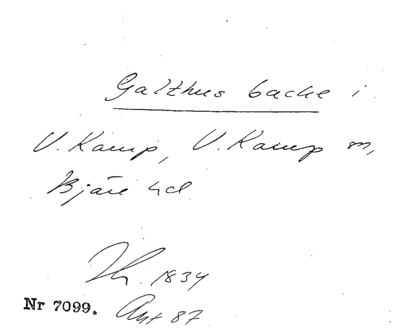 Galthus backe i
V. Karup, V. Karup sn,
Bjäre hd
Th. 1834
Nr 7099. Ant 87